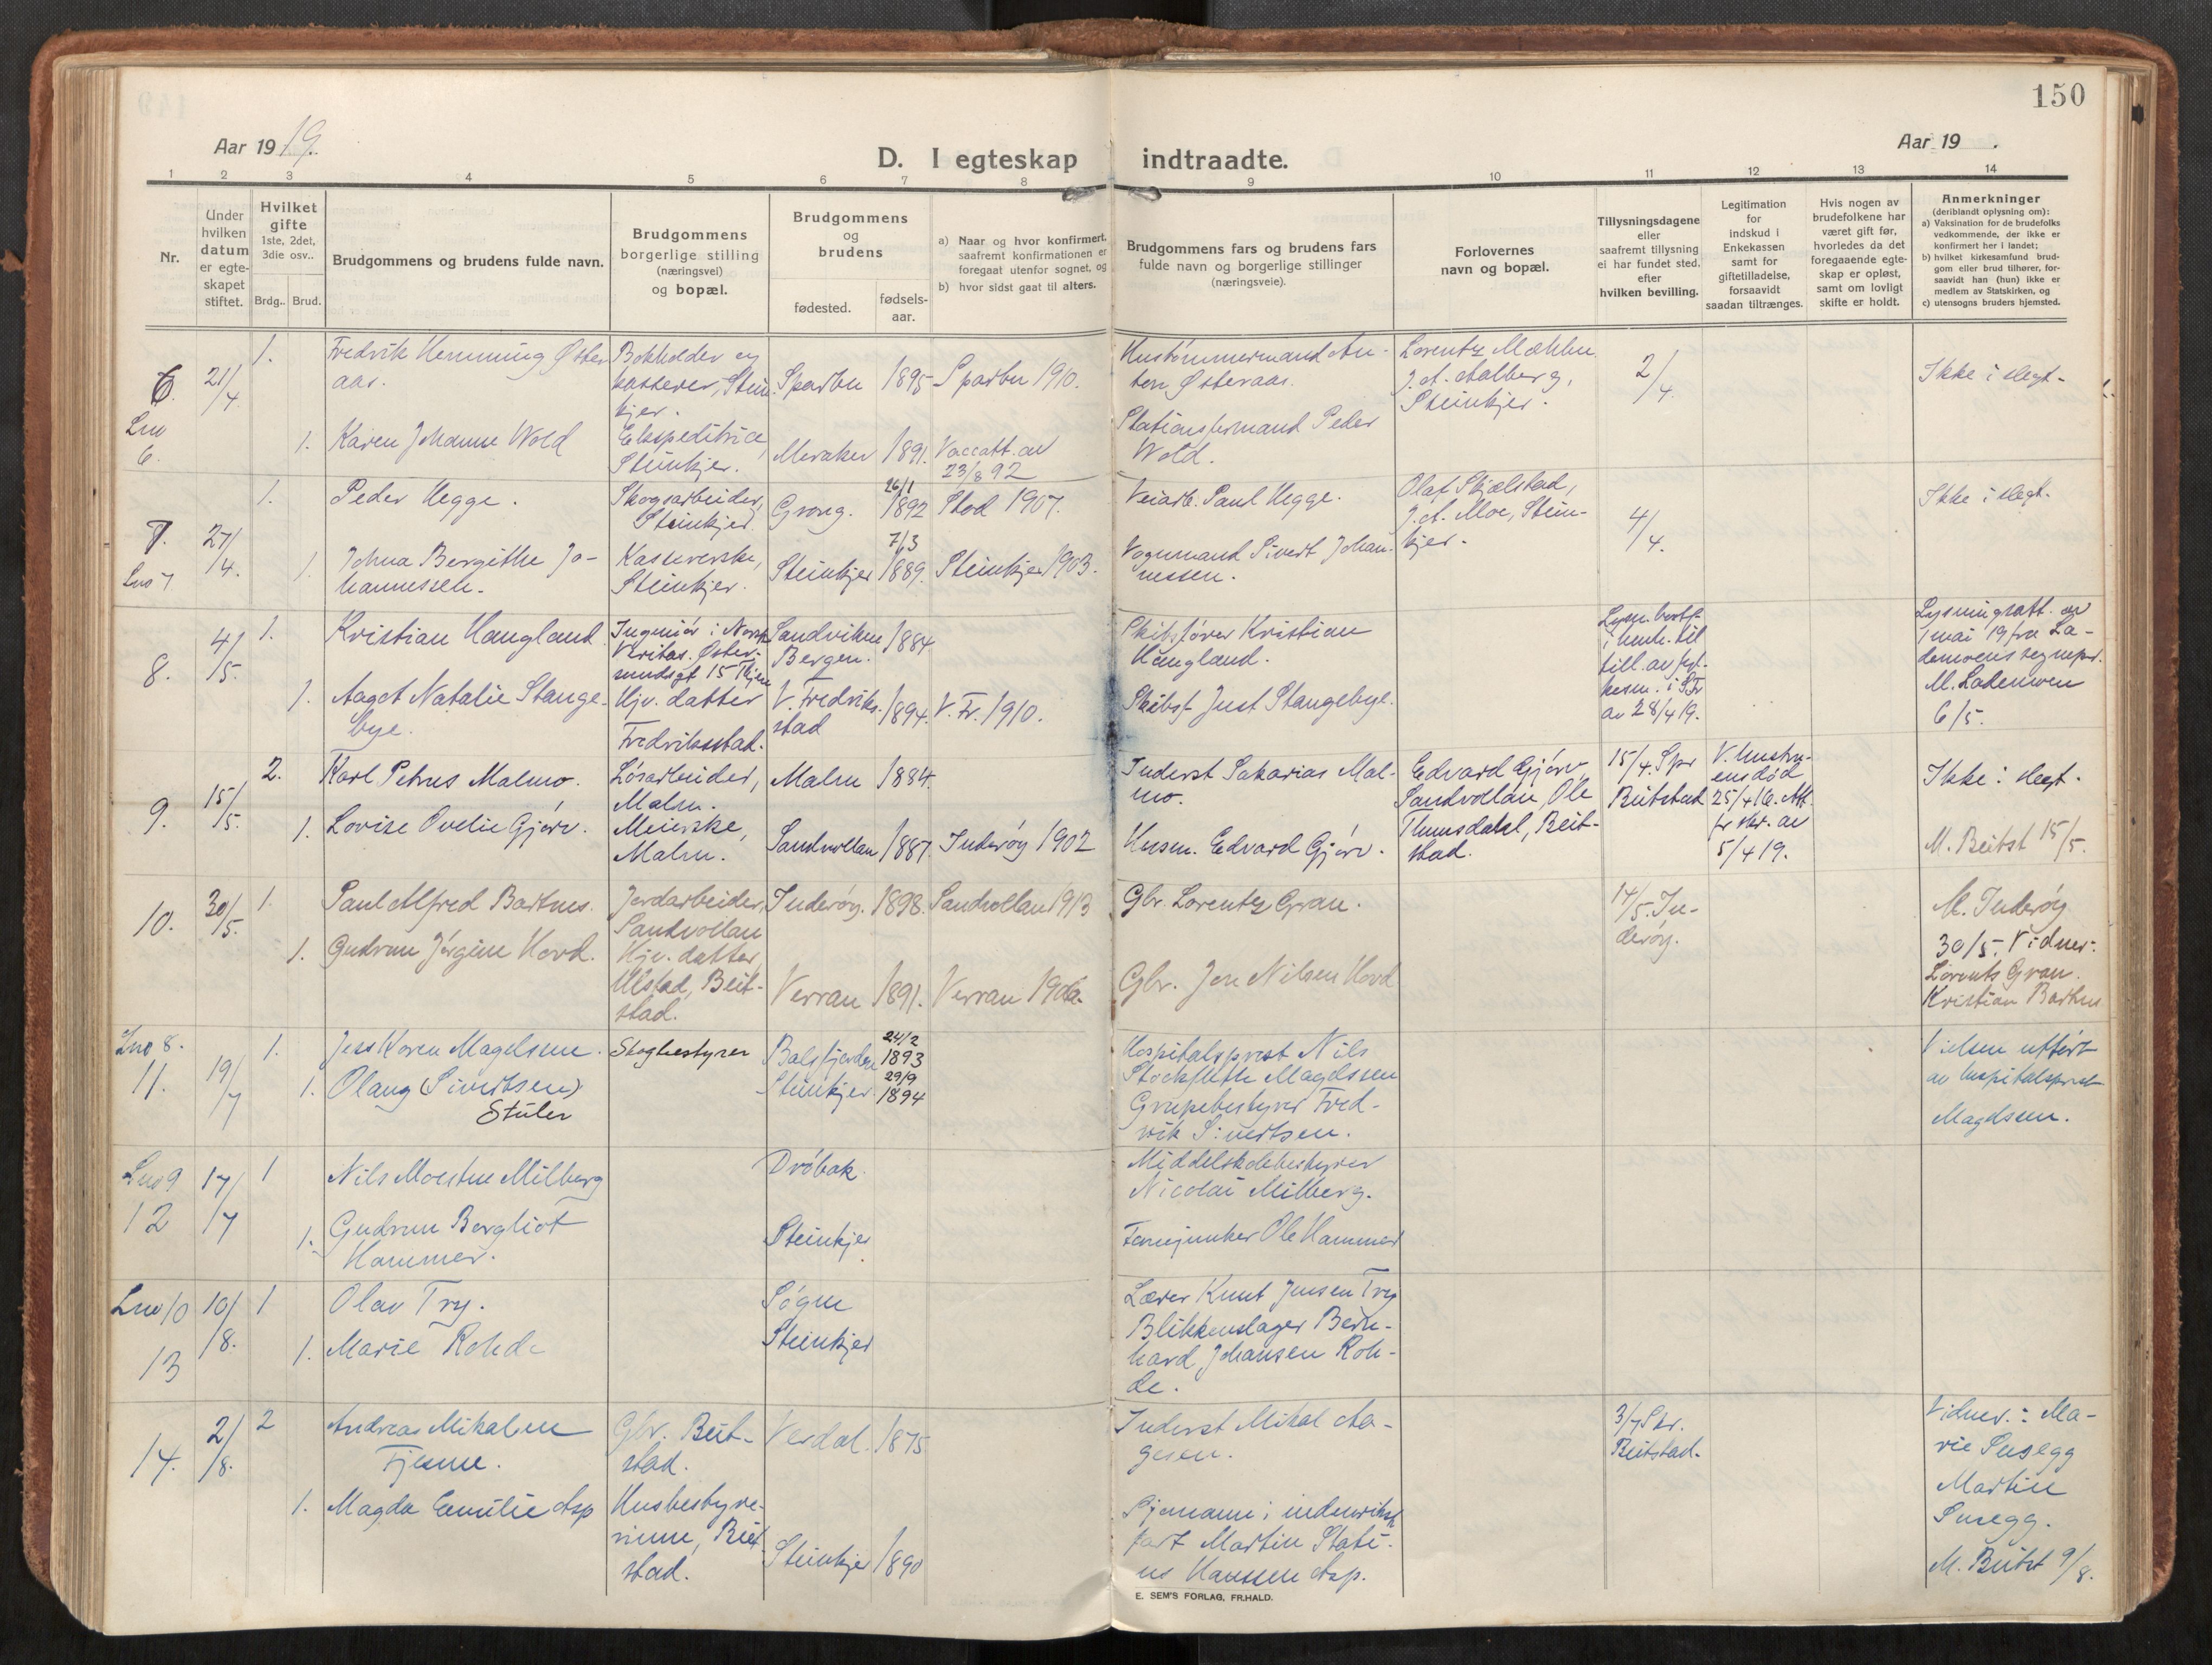 150
Aar 1919.
D. I egteskap indtraadte.
Aar 19 .
1 2 3 4 5 6 7 8 9 10 11 12 13 14
Nr.
Under
hvilken
datum
er egte-
skapet
stiftet.
Hvilket
gifte
1ste, 2det,
3die osv..
Brdg.. Brud.
Brudgommens og brudens fulde navn.
Brudgommens
borgerlige stilling
(næringsvei)
og bopæl.
Brudgommens
og
brudens
fødested.
fødsels-
aar.
a) Naar og hvor konfirmert,
saafremt konfirmationen er
foregaat utenfor sognet, og
b) hvor sidst gaat til alters.
Brudgommens fars og brudens fars
fulde navn og borgerlige stillinger
(næringsveie).
Forlovernes
navn og bopæl.
Tillysningsdagene
eller
saafremt tillysning
ei har fundet sted,
efter
hvilken bevilling.
Legitimation
for
indskud i
Enkekassen
samt for
giftetilladelse,
forsaavidt
saadan tiltrænges.
Hvis nogen av
brudefolkene har
været gift før,
hvorledes da det
foregaaende egte-
skap er opløst,
samt om lovligt
skifte er holdt.
Anmerkninger
(deriblandt oplysning om):
a) Vaksination for de brudefolks
vedkommende, der ikke er
konfirmert her i landet;
b) hvilket kirkesamfund brud-
gom eller brud tilhører, for-
saavidt han (hun) ikke er
medlem av Statskirken, og
c) utensogns bruders hjemsted.
6.
Lno
6.
21/4
1.
Fredrik Hemming Øster
aas.
Bokholder og
kasserer, Stein
kjer.
Sparbu
1895
Sparbu 1910.
Hustømmermand An-
ton Østeraas.
Lorentz Mækhu
J. A. Aalberg,
Steinkjer.
2/4.
Ikke i slegt.
1.
Karen Johanne Wold
Ekspeditrice,
Steinkjer.
Meraker
1891.
Vaccatt. av
23/8 92
Stationsformand Peder
Wold.
7.
Lno 7
27/4.
1.
Peder Hegge.
Skogsarbeider,
Steinkjer.
Grong.
26/1
1892
Stod 1907.
Veiarb. Paul Hegge.
Olaf Skjelstad,
J. A. Moe, Stein-
kjer.
4/4.
Ikke i slegt.
1.
Johna Bergithe Jo-
hannessen.
Kassererske,
Steinkjer.
Steinkjer
7/3
1889.
Steinkjer 1903.
Vognmand Sivert Johan
nessen.
8.
4/5.
1.
Kristian Haugland
Ingeniør i Norsk
Veritas. Øster-
sundsgt 15 Kjøn
Sandviken
Bergen.
1884
Skibsfører Kristian
Haugland.
av 28/4 19.
Lysningsatt. av
1 mai 19 fra La-
demoens sognepr.
M. Lademoen
6/5.
1.
Aagot Natalie Stange-
bye.
Hjv. datter
Fredriksstad.
V. Fredriks-
stad
1894.
V. Fr. 1910.
Skibsf Just Stangebye.
9.
15/5.
2.
Karl Petrus Malmo.
Løsarbeider,
Malm.
Malm
1884.
Inderst Sakarias Mal-
mo.
Edvard Gjørv
Sandvollan, Ole
Beit-
stad.
15/4. Spr
Beitstad
V. hustru-
ens død
25/4 16. Att.
fr skr. av
5/4 19.
Ikke i slegt.
M. Beitst 15/5.
1.
Lovise Ovelie Gjørv.
Meierske,
Malm.
Sandvollan
1887.
Inderøy 1902
Husm. Edvard Gjørv.
10.
30/5.
1.
Paul Alfred Bartnes.
Jordarbeider,
Sandvollan
Inderøy.
1898.
Sandvollan 1913
Gbr. Lorentz Gran.
14/5. In-
derøy.
M. Inderøy
30/5. Vidner:
Lorents Gran.
Kristian Bartnes
1.
Gudrun Jørgine Hovd.
Hjv. datter,
Ulstad, Beit-
stad.
Verran
1891.
Verran 1906.
Gbr. Jon Nilsen Hovd
Lno 8.
11.
19/7
1.
Jess Koren Magelssen.
Skogbestyrer
Balsfjorden
24/2
1893
Hospitalsprest Nils
Stockfleth Magelssen
Vielsen utført
av hospitalsprest
Magelssen.
1.
Olaug (Sivertsen)
Stuler
Steinkjer.
29/9
1894
Grubebestyrer Fred-
rik Sivertsen.
Lno 9
12
17/7
1
Nils Moestue Milberg
Drøbak.
Middelskolebestyrer
Nicolai Milberg.
1.
Gudrun Bergliot
Hammer.
Steinkjer
Fanejunker Ole Hammer
Lno 10
13
10/8.
1
Olav Try.
Søgne
Lærer Knut Jensen Try
1.
Marie Rohde
Steinkjer
Blikkenslager Bern-
hard Johansen Roh-
de.
14.
2/8.
2
Andreas Mikalsen
Tjesme.
Gbr. Beit-
stad.
Verdal.
1875
Inderst Mikal Aa-
gesen.
3/7 Skr.
Beitstad.
Vidner: Ma-
rie Susegg
Martin
Susegg.
M. Beitst 9/8.
1.
Magda Emilie Asp
Husbestyre-
rinne, Beit
stad.
Steinkjer
1890
Sjømann i indenriksk
fart Martin Stati-
us Hanssen Asp.
E. SEM'S FORLAG, FR.HALD.